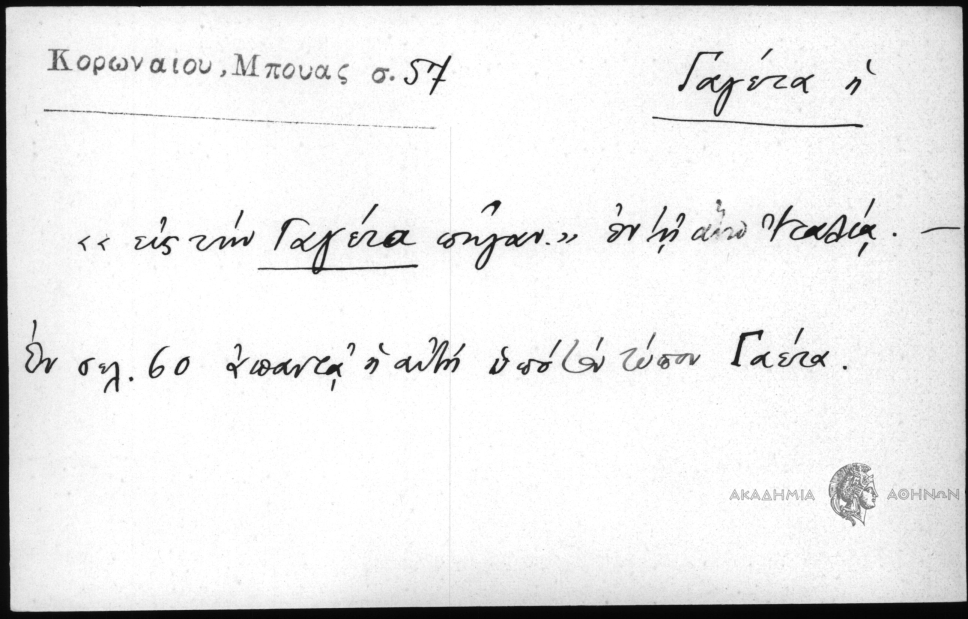 Κορωναιου, Μπουας σ. 57
Γαγέτα ἡ
«εἰς τὴν Γαγέτα πῆγαν.» ἐν τῇ Ἰταλίᾳ. —
Ἐν σελ. 60 ἀπαντᾷ ἡ αὐτὴ ὑπὸ τὸν τύπον Γαέτα.
ΑΚΑΔΗΜΙΑ ΑΘΗΝΩΝ